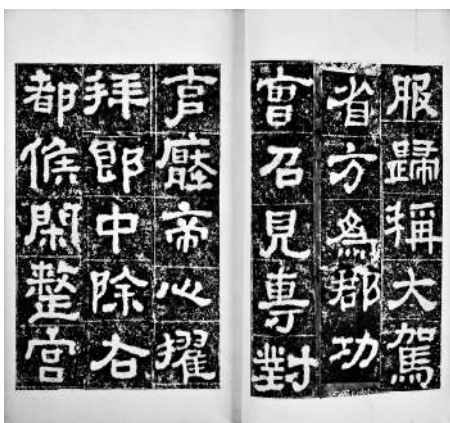 服歸稱大駕
省方為郡功
曹召見專對
克厭帝心擢
拜郎中除右
都候閑整宮